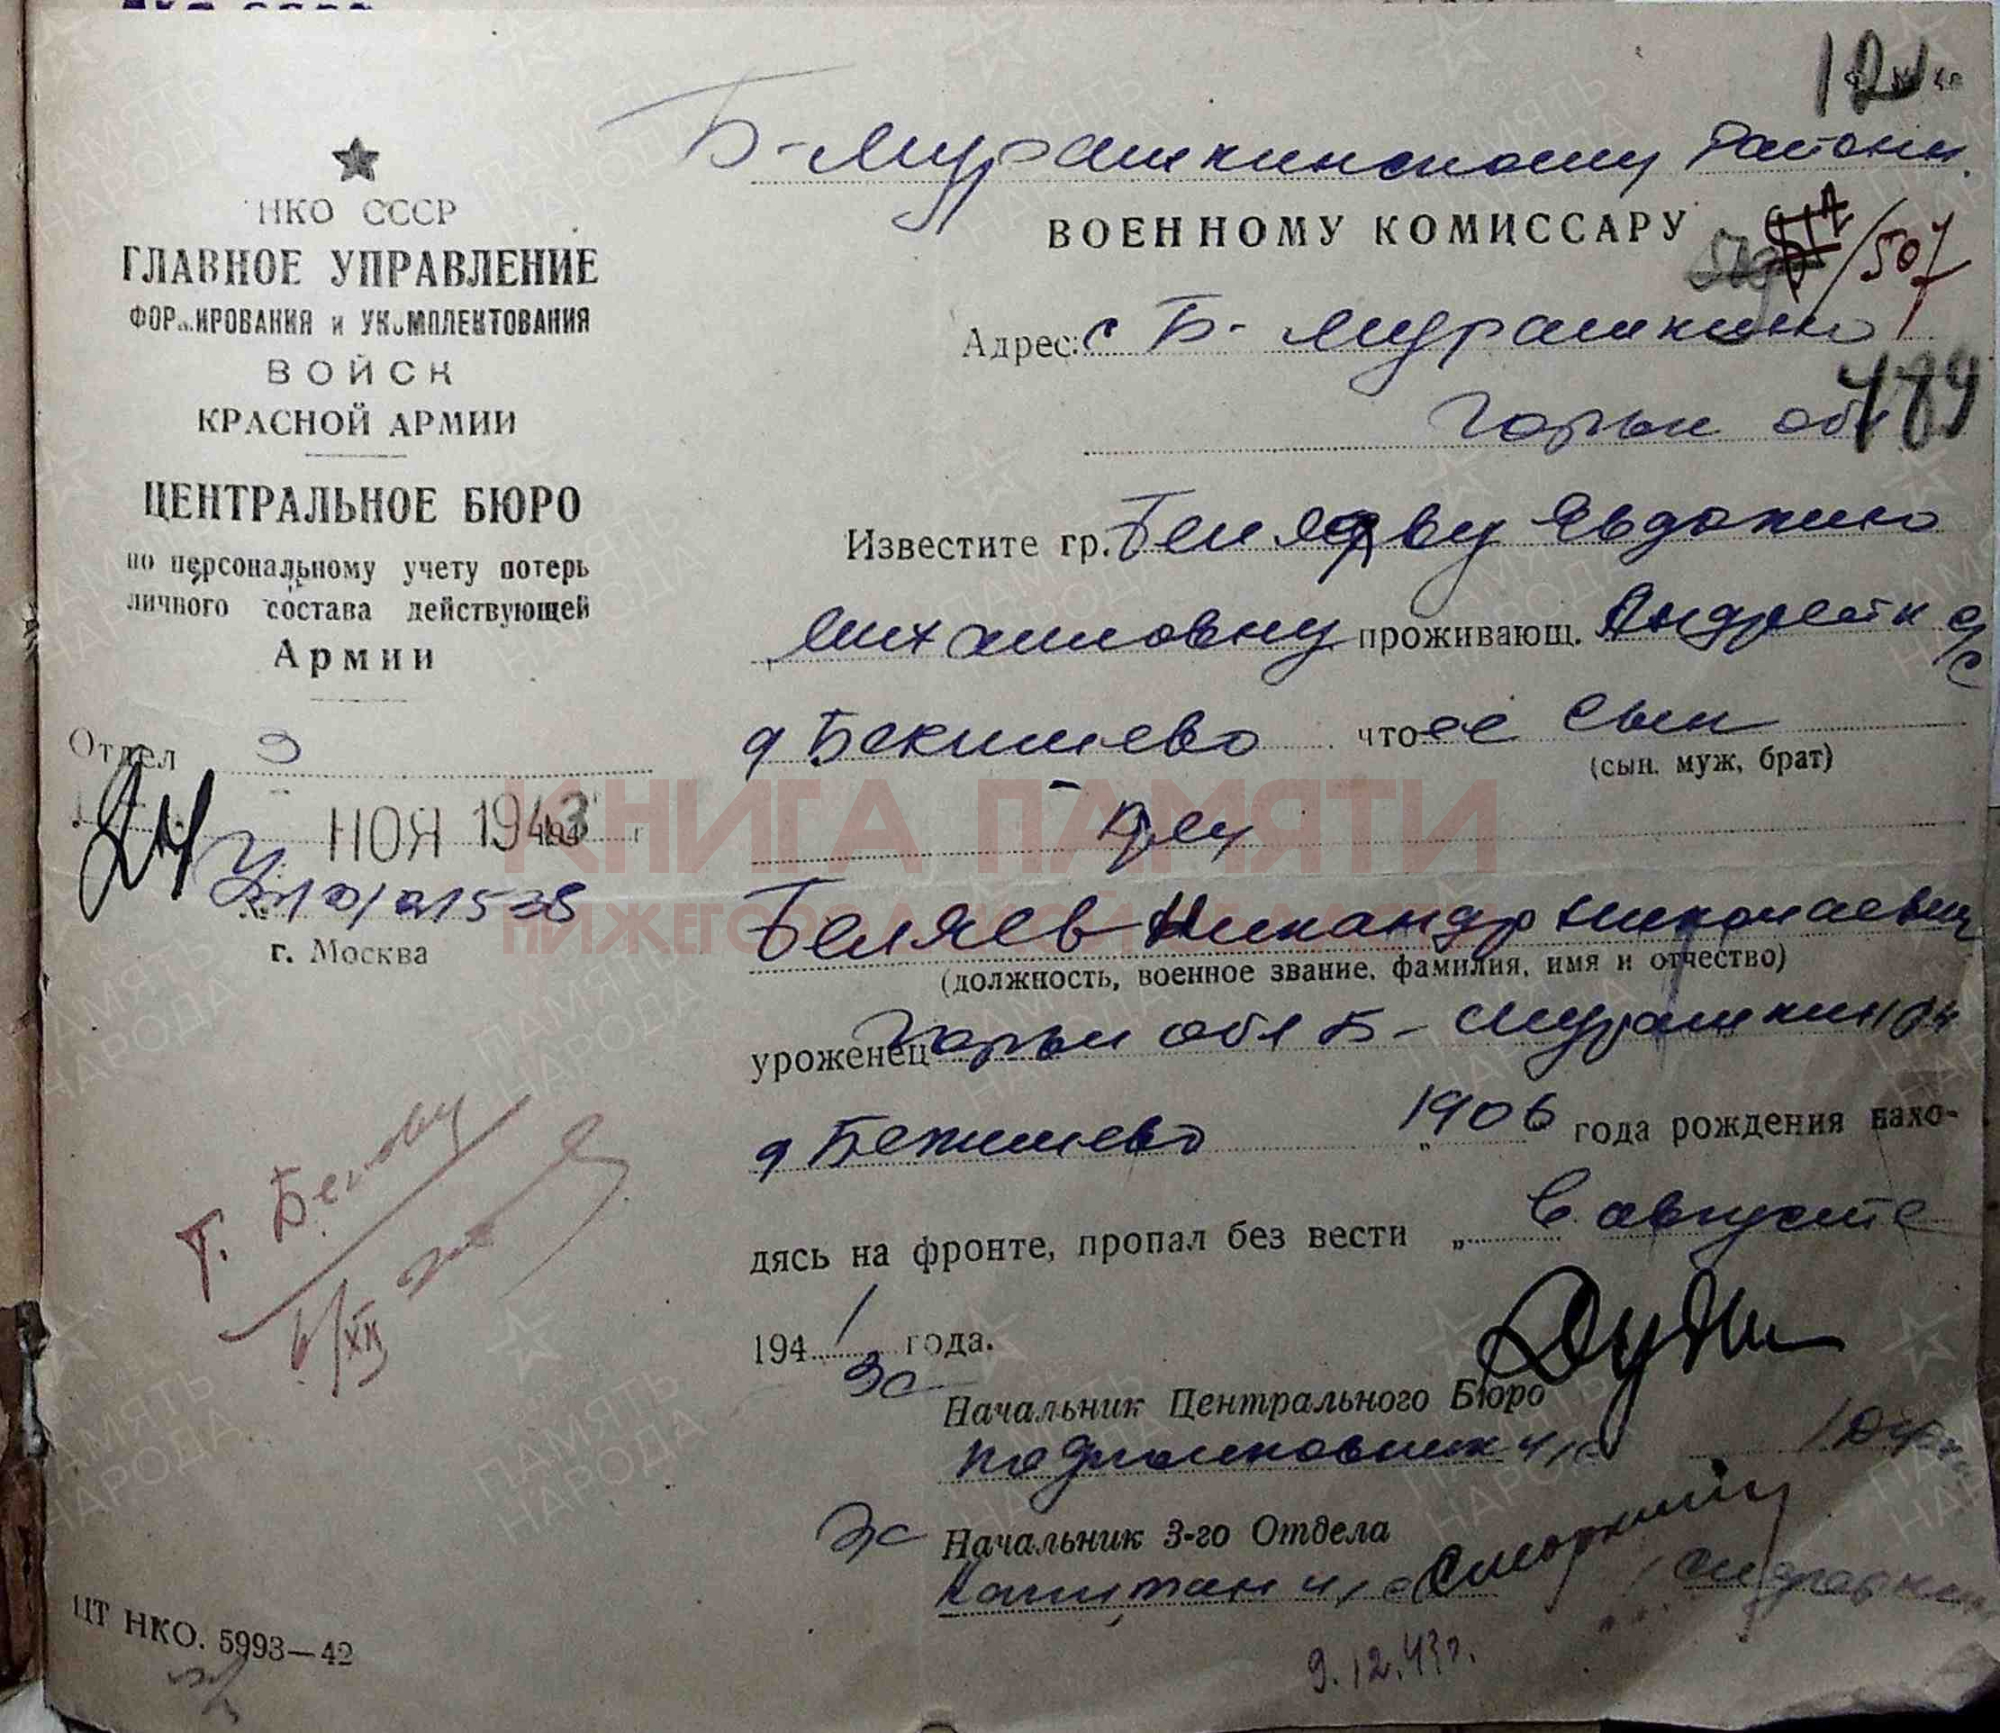 Б-Мурашкинскому Районн.
ВОЕННОМУ КОМИССАРУ
/507
Адрес: с Б-Мурашкино
Горьк обл
489
НКО СССР
ГЛАВНОЕ УПРАВЛЕНИЕ
ФОРМИРОВАНИЯ и УКОМПЛЕКТОВАНИЯ
ВОЙСК
КРАСНОЙ АРМИИ
ЦЕНТРАЛЬНОЕ БЮРО
по персональному учету потерь
личного состава действующей
Армии
Отдел 3
24 НОЯ 1943 г
г. Москва
Известите гр. Беляеву Явдокию
Михаиловну проживающ. Андреевск с/с
д Бекишево что ее сын
(сын. муж, брат)
Беляев Никандр Николаевич
(должность, военное звание, фамилия, имя и отчество)
уроженец Горьк обл Б-Мурашкин рн
д Бекишево 1906 года рождения нахо-
дясь на фронте, пропал без вести „ в августе
1941 года.
зс Начальник Центрального Бюро
подполковник и/с
зс Начальник 3-го Отдела
Капитан и/с
9.12.43г.
т. Белову
6/XII
ЦТ НКО. 5993—42
КНИГА ПАМЯТИ
НИЖЕГОРОДСКОЙ ОБЛАСТИ
ПАМЯТЬ НАРОДА